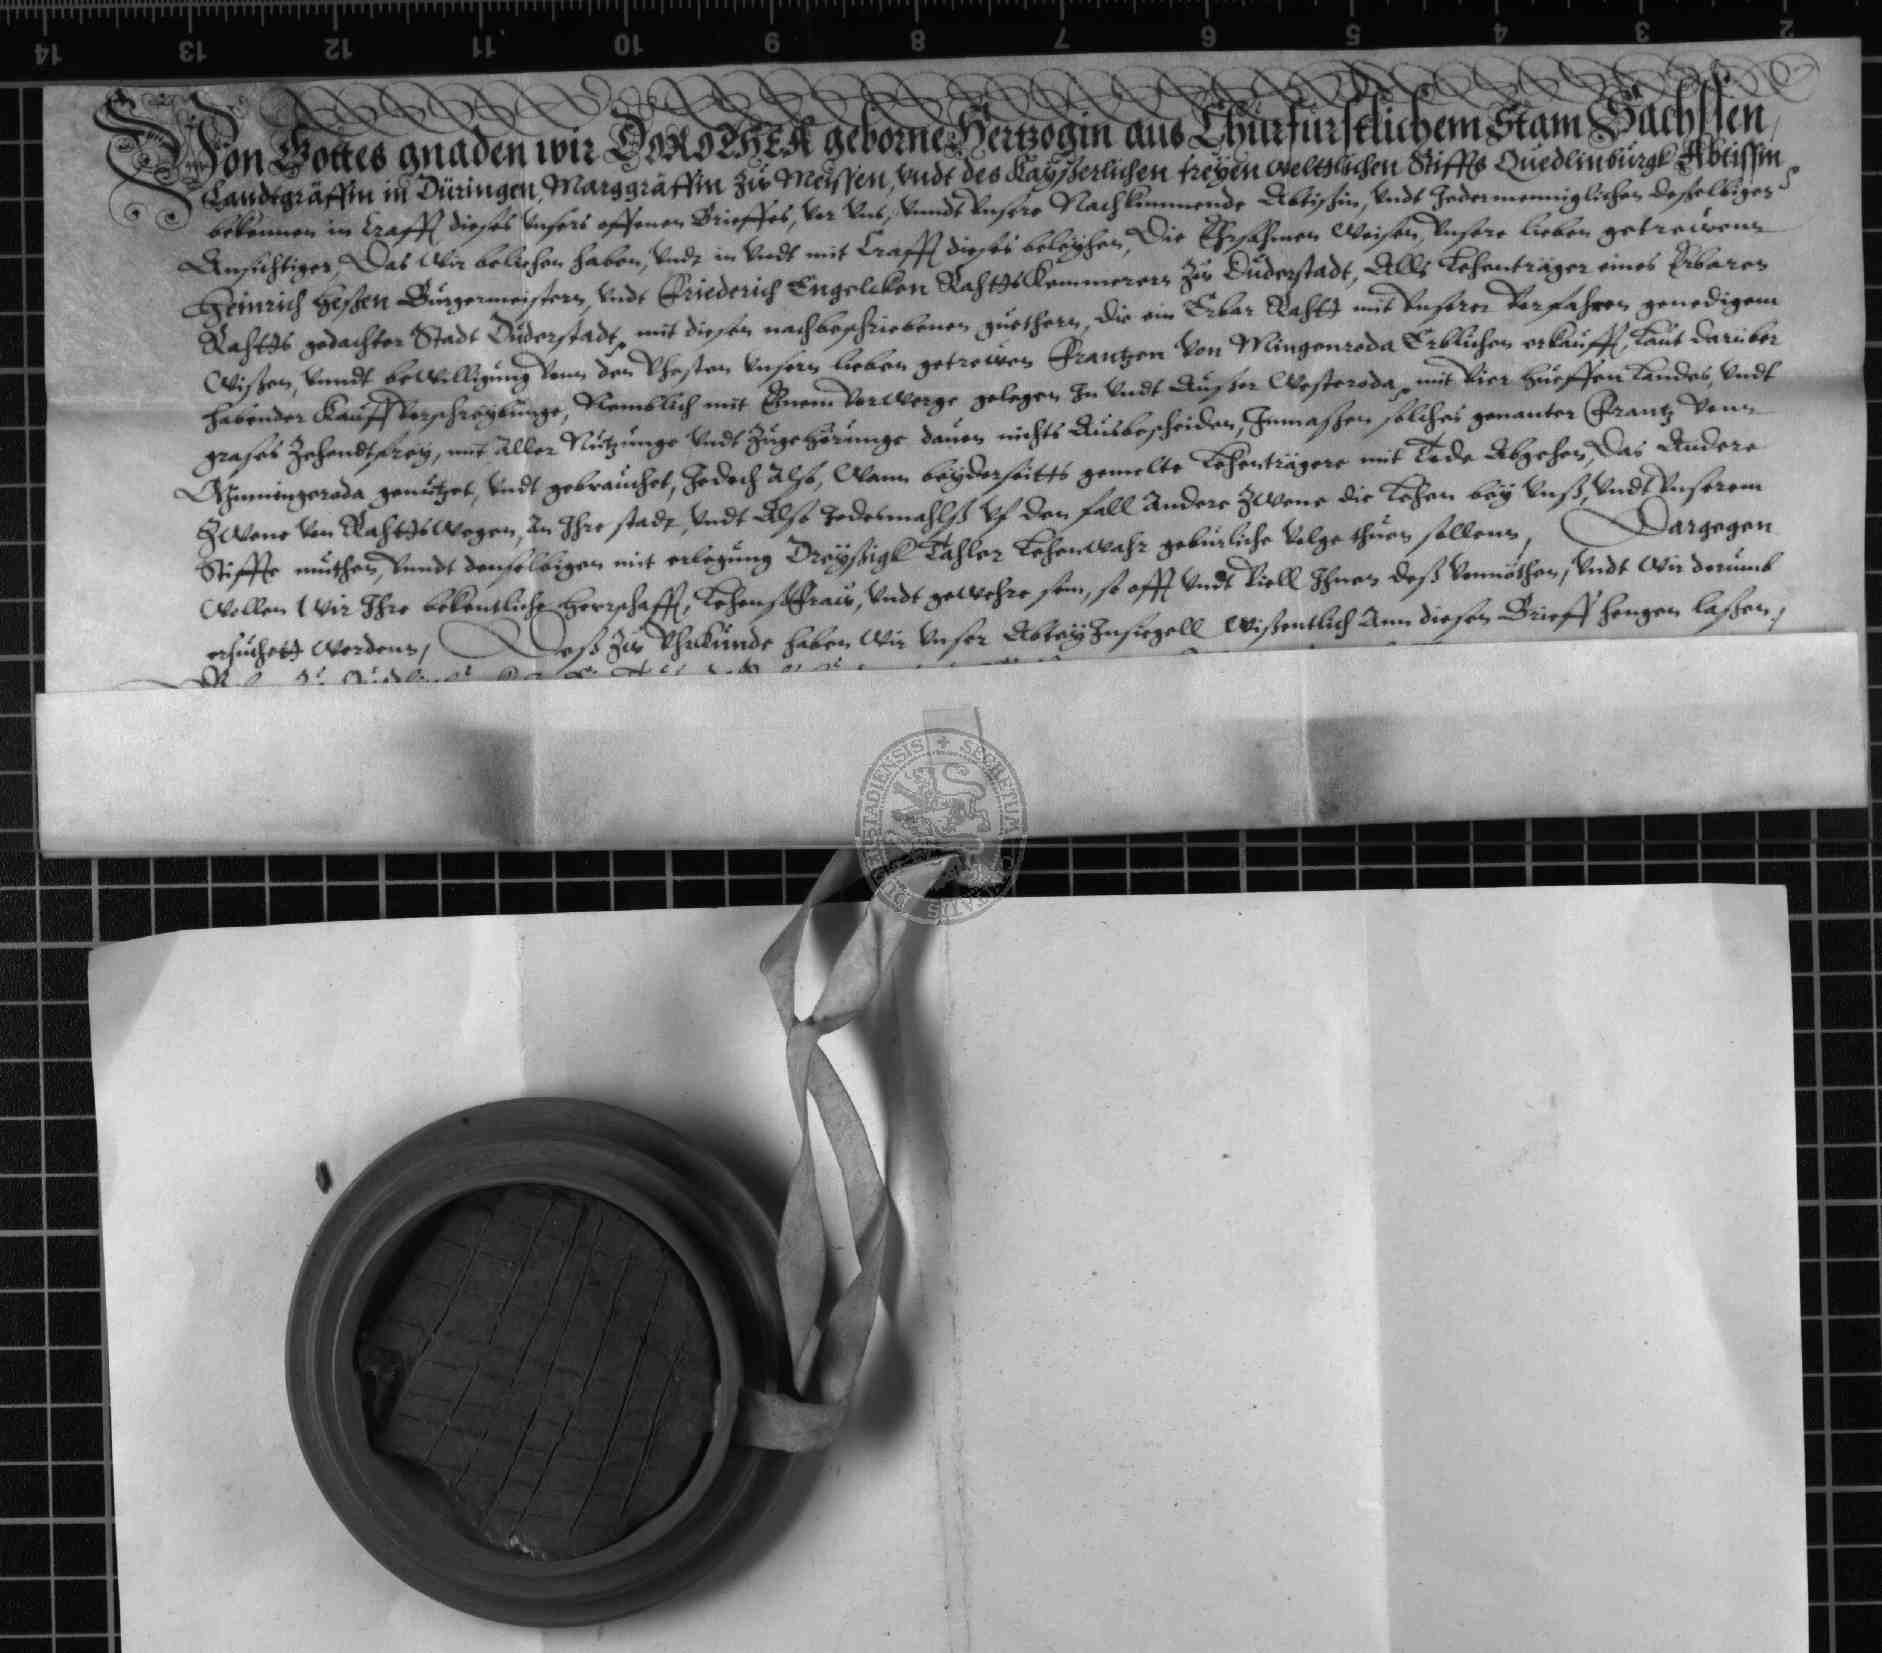 Von Gottes gnaden wir DOROTHEA geborne Hertzogin aus Churfürstlichem Stam Sachssen,
Landtgräffin in Düringen, Marggräffin zu Meyssen, undt des Kayserlichen freyen weltlichen Stiffts Quedlinburgk Abtissin
bekennen in Crafft dieses unsers offenen Brieffes, vor uns, unndt unsere Nachkimmende Abtissin, undt Jedermenniglichen desselbigen
Ansichtigen, Das Wir beliehen haben, undt in undt mit Crafft dieses beleyhen, Die Ehrsahmen Weisen, unsere lieben getrewenn
Heinrich Heßen Burgermeistern, undt Friederich Engelcken RahttsKemmerern zu Duderstadt, Allß Lehenträger eines Erbaren
Rahtts gedachter Stadt Duderstadt, mit diesen nachbeschriebenen guethern, die ein Erbar Rahtt mit unserer Vorfahren genedigem
Wißen, unndt beWilligung vonn den Vhesten unsern lieben getrewen Frantzen von Mingenroda Erblichen erkaufft, Laut daruber
habender Kauffverschreybunge, Nemblich mit Einem Vorwerge gelegen In undt Ausser Westeroda, mit vier Hueffen Landes, undt
grases Zehendtfrey, mit aller Nutzunge undt Zugehörunge davon nichts Ausbescheiden, Inmaßen solches genanter Frantz vonn
Minningeroda genutzet, undt gebrauchet, Jedoch also, Wann beyderseitts gemelte Lehenträgere mit Tode Abgehen, Das Andere
Zwene von RahttsWegen, An Ihre stadt, undt Also Jedesmahlß uf den fall Andere Zwene die Lehen bey unß, undt unserem
Stiffte muthen, unndt denselbigen mit erlegung Dreyßigk Tahler Lehenwahr geburliche Volge thuen sollenn, Dargegen
Wollen Wir Ihre bekentliche Herrschafft, LehensFraw, undt geWehre sein, so offt undt viell Ihnen deß vonnöthen, undt Wir derumb
ersuchett Werdenn, Deß zu Uhrkunde haben Wir unser Abtey Insiegell Wißentlich Ann diesen Brieff hengen laßen,
SECRETUM